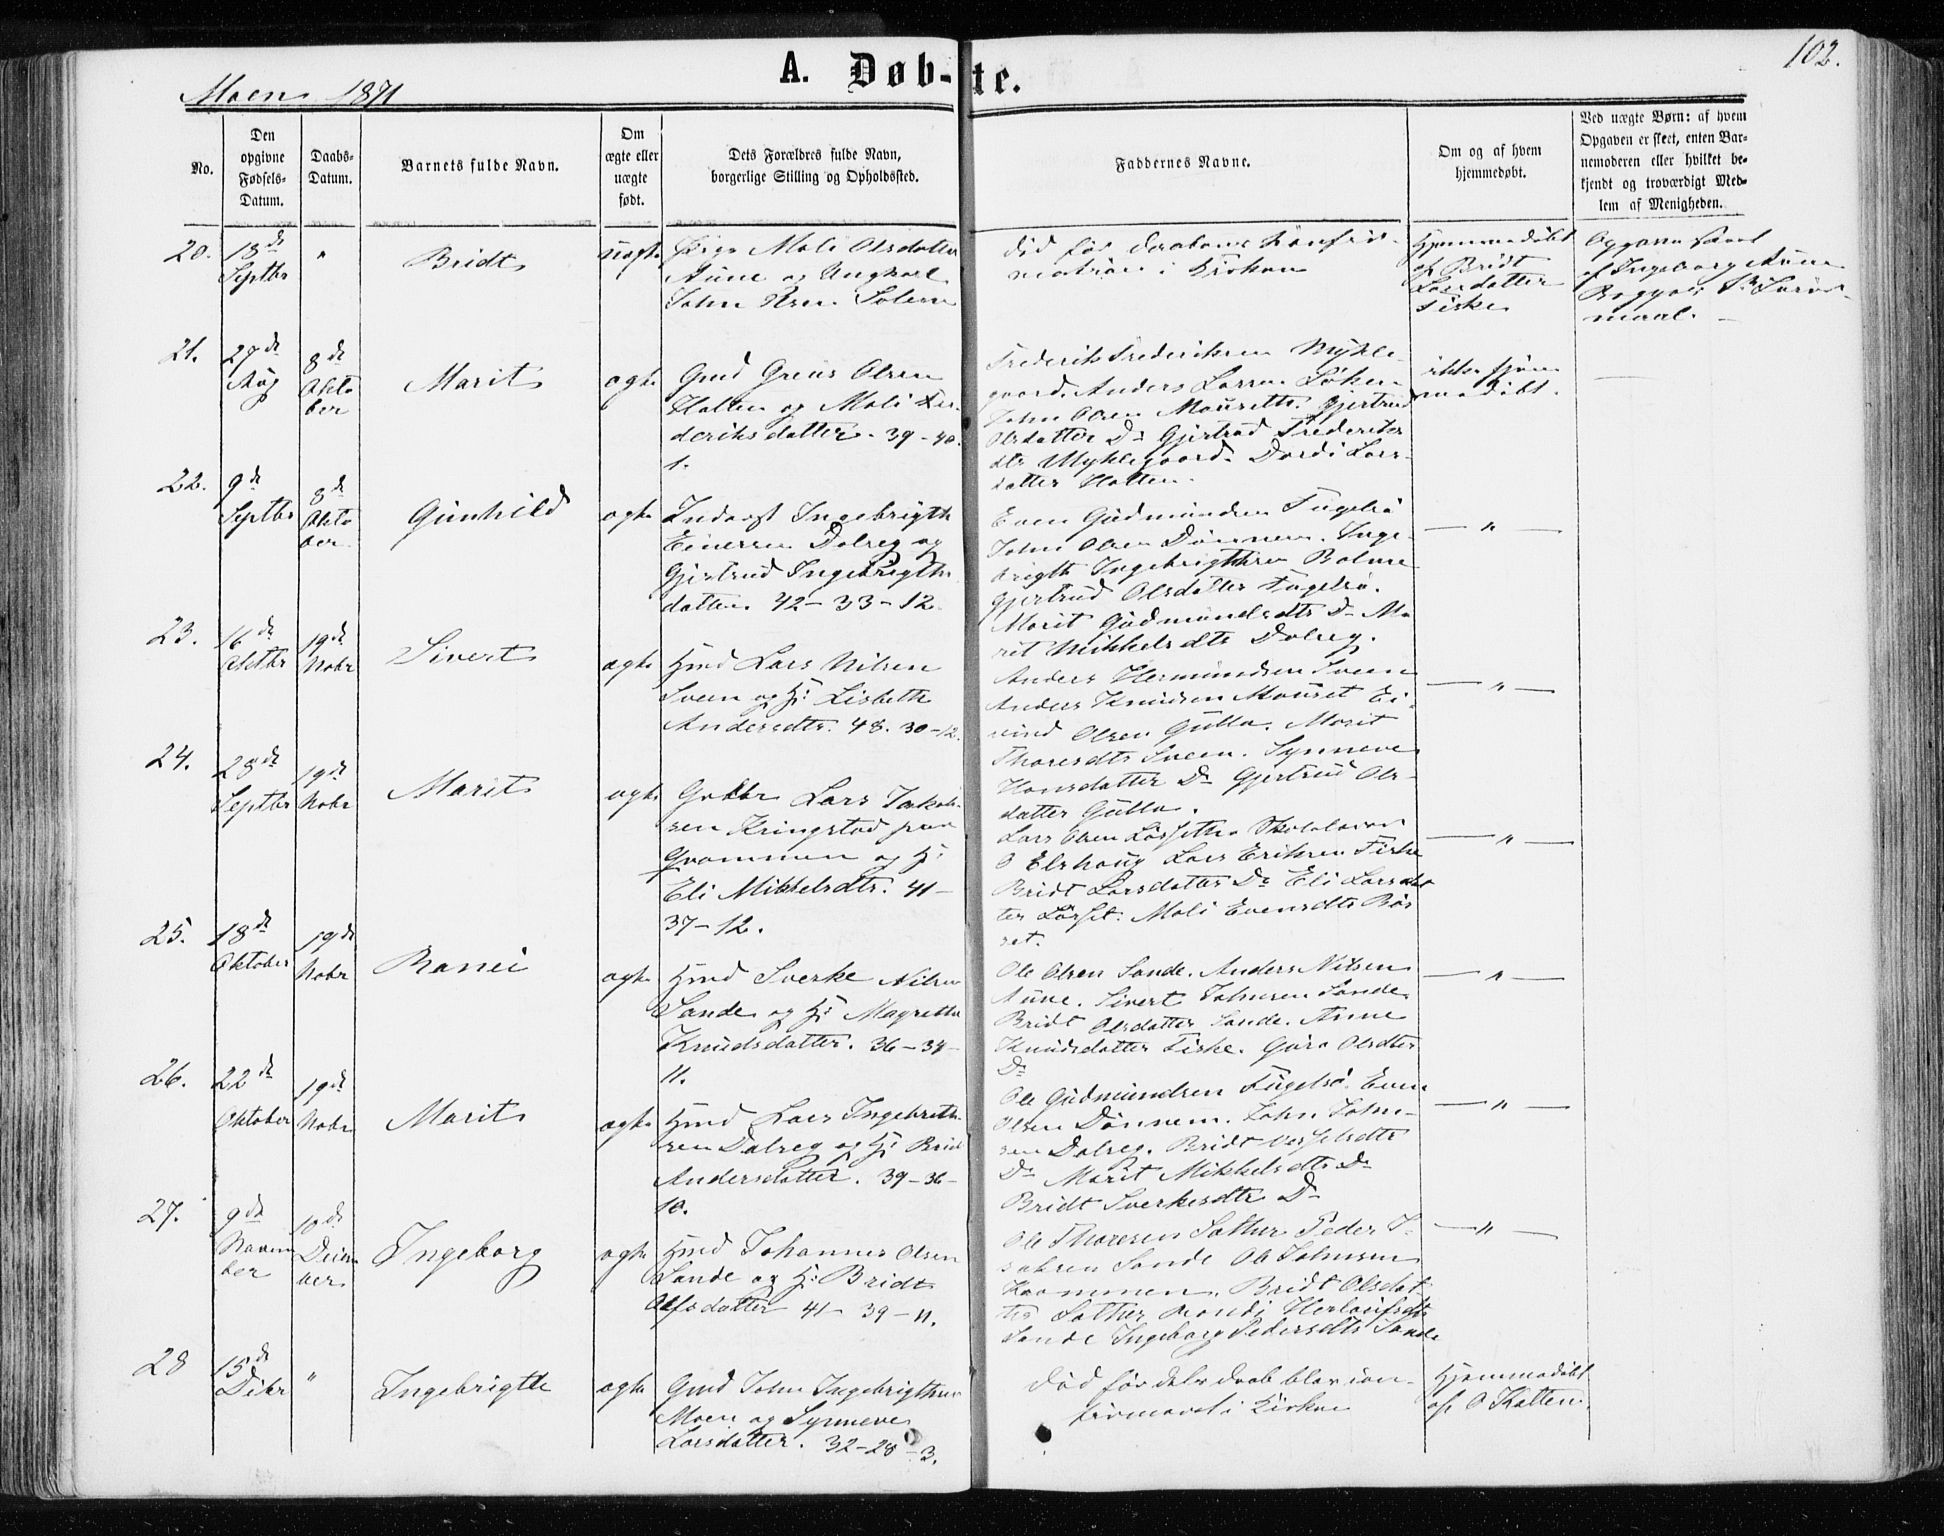 102.
A. Døb-te.
Moen 1871
No.
Den opgivne Fødsels-Datum.
Daabs-Datum.
Barnets fulde Navn.
Om ægte eller uægte født.
Dets Forældres fulde Navn, borgerlige Stilling og Opholdssted.
Faddernes Navne.
Om og af hvem hjemmedøbt.
Ved uægte Børn: af hvem Opgaven er skeet, enten Barnemoderen eller hvilket bekjendt og troværdigt Medlem af Menigheden.
20.
18de
Septbr
"
Bridt
uægte
Pige Mali Olsdatter
Aune og Ungkarl
John Solem
død før
i Kirken
Hjemmedøbt
af Bridt
Larsdatter
Fiske
af Ingeborg Aune
21.
27de
Aug
8de
Okto
ber
Marit
ægte
Gmd Olsen
Halten og Mali Fre-
deriksdatter. 39-40.
1.
Frederik Frederiksen Mykle-
gaard. Anders Larsen Løken
John Olsen Mauseth. Gjertrud
Olsdatter Do Gjertrud Frederiks
dtr Myklegaard. Dordi Lars-
datter Halten.
ikke hjem-
medøbt.
—
22.
9de
Septbr
8de
Okto
ber
Gunhild
ægte
Inderst Ingebrigth
Einersen Dalseg og
Gjertrud Ingebrigths
datter. 42-33-12.
Even Gudmundsen Fugelsø
John Olsen Dønnem. Inge-
brigth Ingebrigthsen Bolme
Gjertrud Olsdatter Fugelsø.
Marit Gudmundsdtr Do Ma
rit Mikkelsdtr Dalseg.
— " —
23.
16de
Oktbr
19de
Nobr
Sivert
ægte
Hmd Lars Nilsen
Sveen og H: Lisbeth
Andersdtr. 48. 30-12.
Anders Hermundsen Sveen
Anders Knudsen Mauset Ei-
vind Olsen Gulla. Marit
Thoresdtr Sveen. Synneve
Hansdatter Do Gjertrud Ols-
datter Gulla.
— " —
24.
28de
Septbr
19de
Nobr
Marit
ægte
Lars Jakob-
sen Kringstad paa
Qvammen og H:
Eli Mikkelsdtr. 41-
37-12.
Lars Olsen Lørseth. Skolelærer
O Elshaug Lars Eriksen Fiske
Bridt Larsdatter Do Eli Larsdat
ter Lørset. Mali Evensdtr Bør
set.
— " —
25.
18de
Oktober
19de
Nobr
Ranei
ægte
Hmd Sverke Nilsen
Sande og H: Magrethe
Knudsdatter. 36-34-
11.
Ole Olsen Sande. Anders Nilsen
Aune. Sivert Johnsen Sande
Bridt Olsdatter Sande. Anne
Knudsdatter Fiske. Guro Olsdtr
Do
— " —
26.
22de
Oktober
19de
Nobr
Marit
ægte
Hmd Lars Ingebreth-
sen Dalseg og H: Bridt
Andersdatter. 39-36-
10.
Ole Gudmundsen Fugelsø. Even
Olsen Dønnem. John John-
sen Dalseg. Bridt Vesselsdtr
Do Marit Mikkelsdtr Do
Bridt Sverkesdtr Do
— " —
27.
9de
Novem
ber
10de
Decem
ber
Ingeborg
ægte
Hmd Johannes Olsen
Sande og H: Bridt
Olfsdatter 41- 39-11.
Ole Thoresen Sæther Peder I-
saksen Sande Ole Johnsen
Kvammen. Bridt Olsdat
ter Sæther Randi Herlaufsdtr
Sande Ingeborg Pedersdtr Sande
— " —
28
15de
Debr
"
Ingebrigth
ægte
Gmd John Ingebrigthsen
Moen og Synneve
Larsdatter. 32-28-3.
død før dets daab blev con-
firmeret i Kirken
Hjemmedøbt
af O Halten.